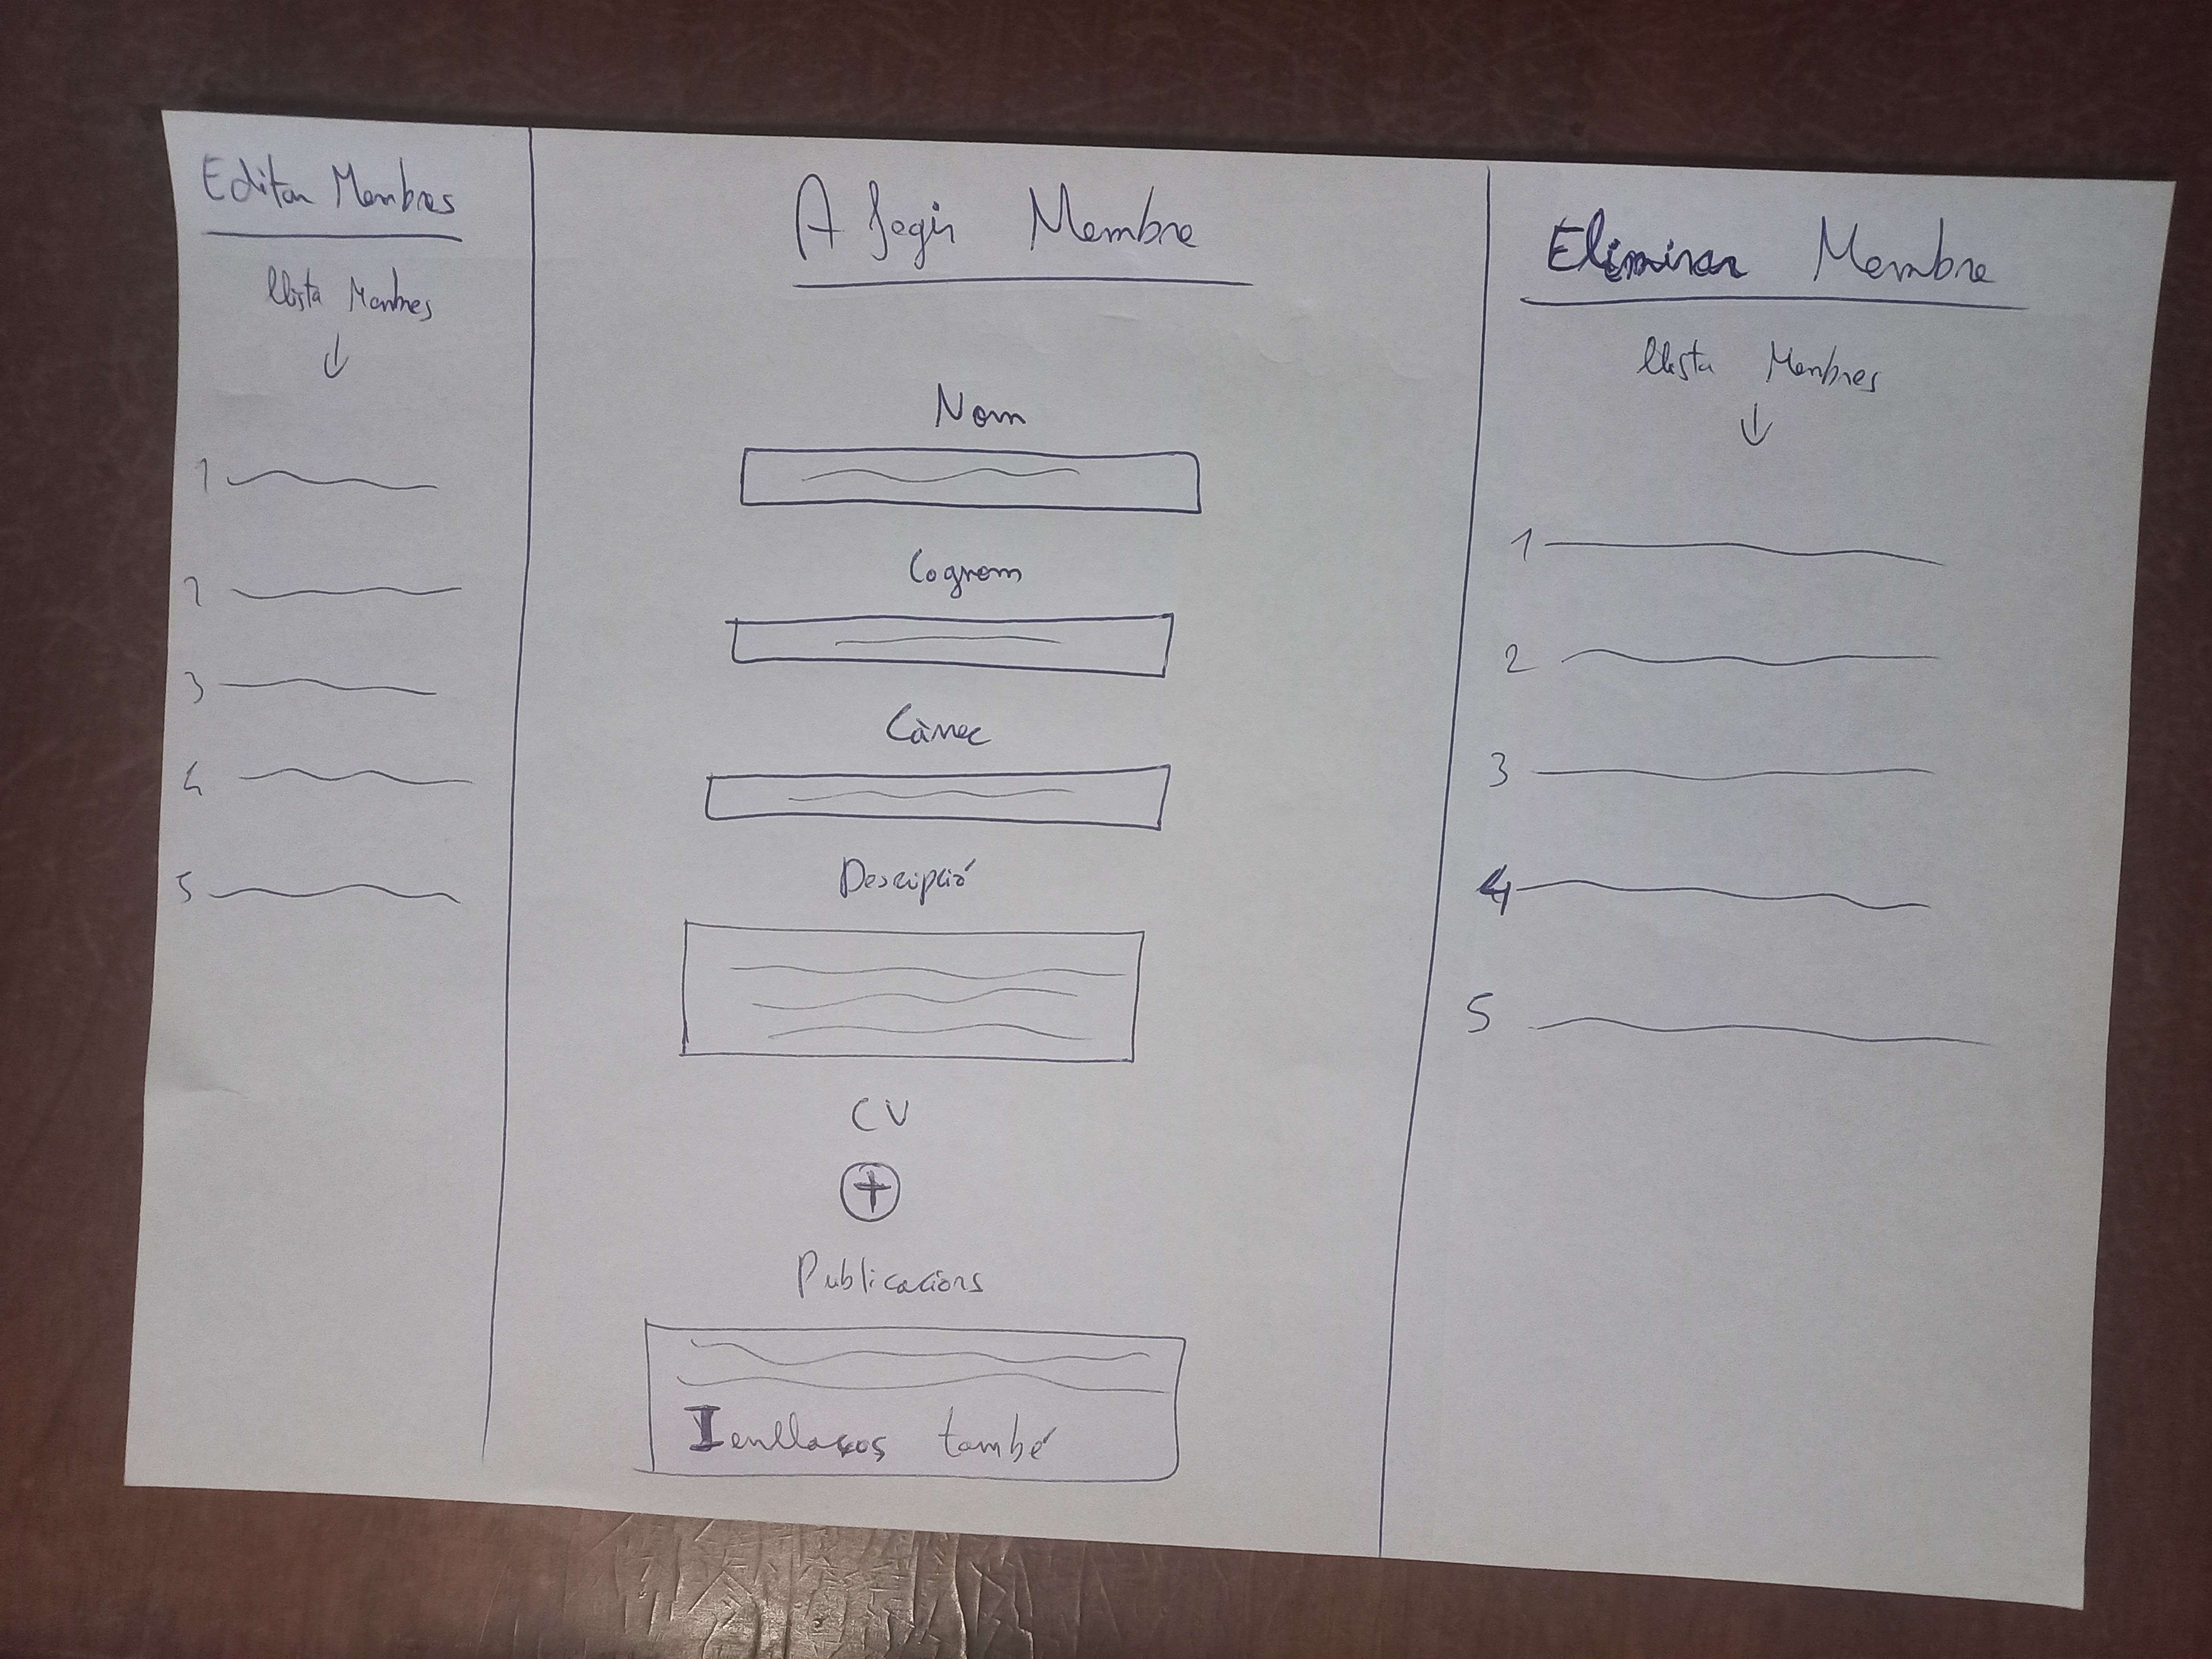 Editar Membres
llista Membres
1
2
3
4
5
Afegir Membre
Nom
Cognom
Càrrec
Descripció
CV
+
Publicacions
I enllaços també
Eliminar Membre
llista Membres
1
2
3
4
5